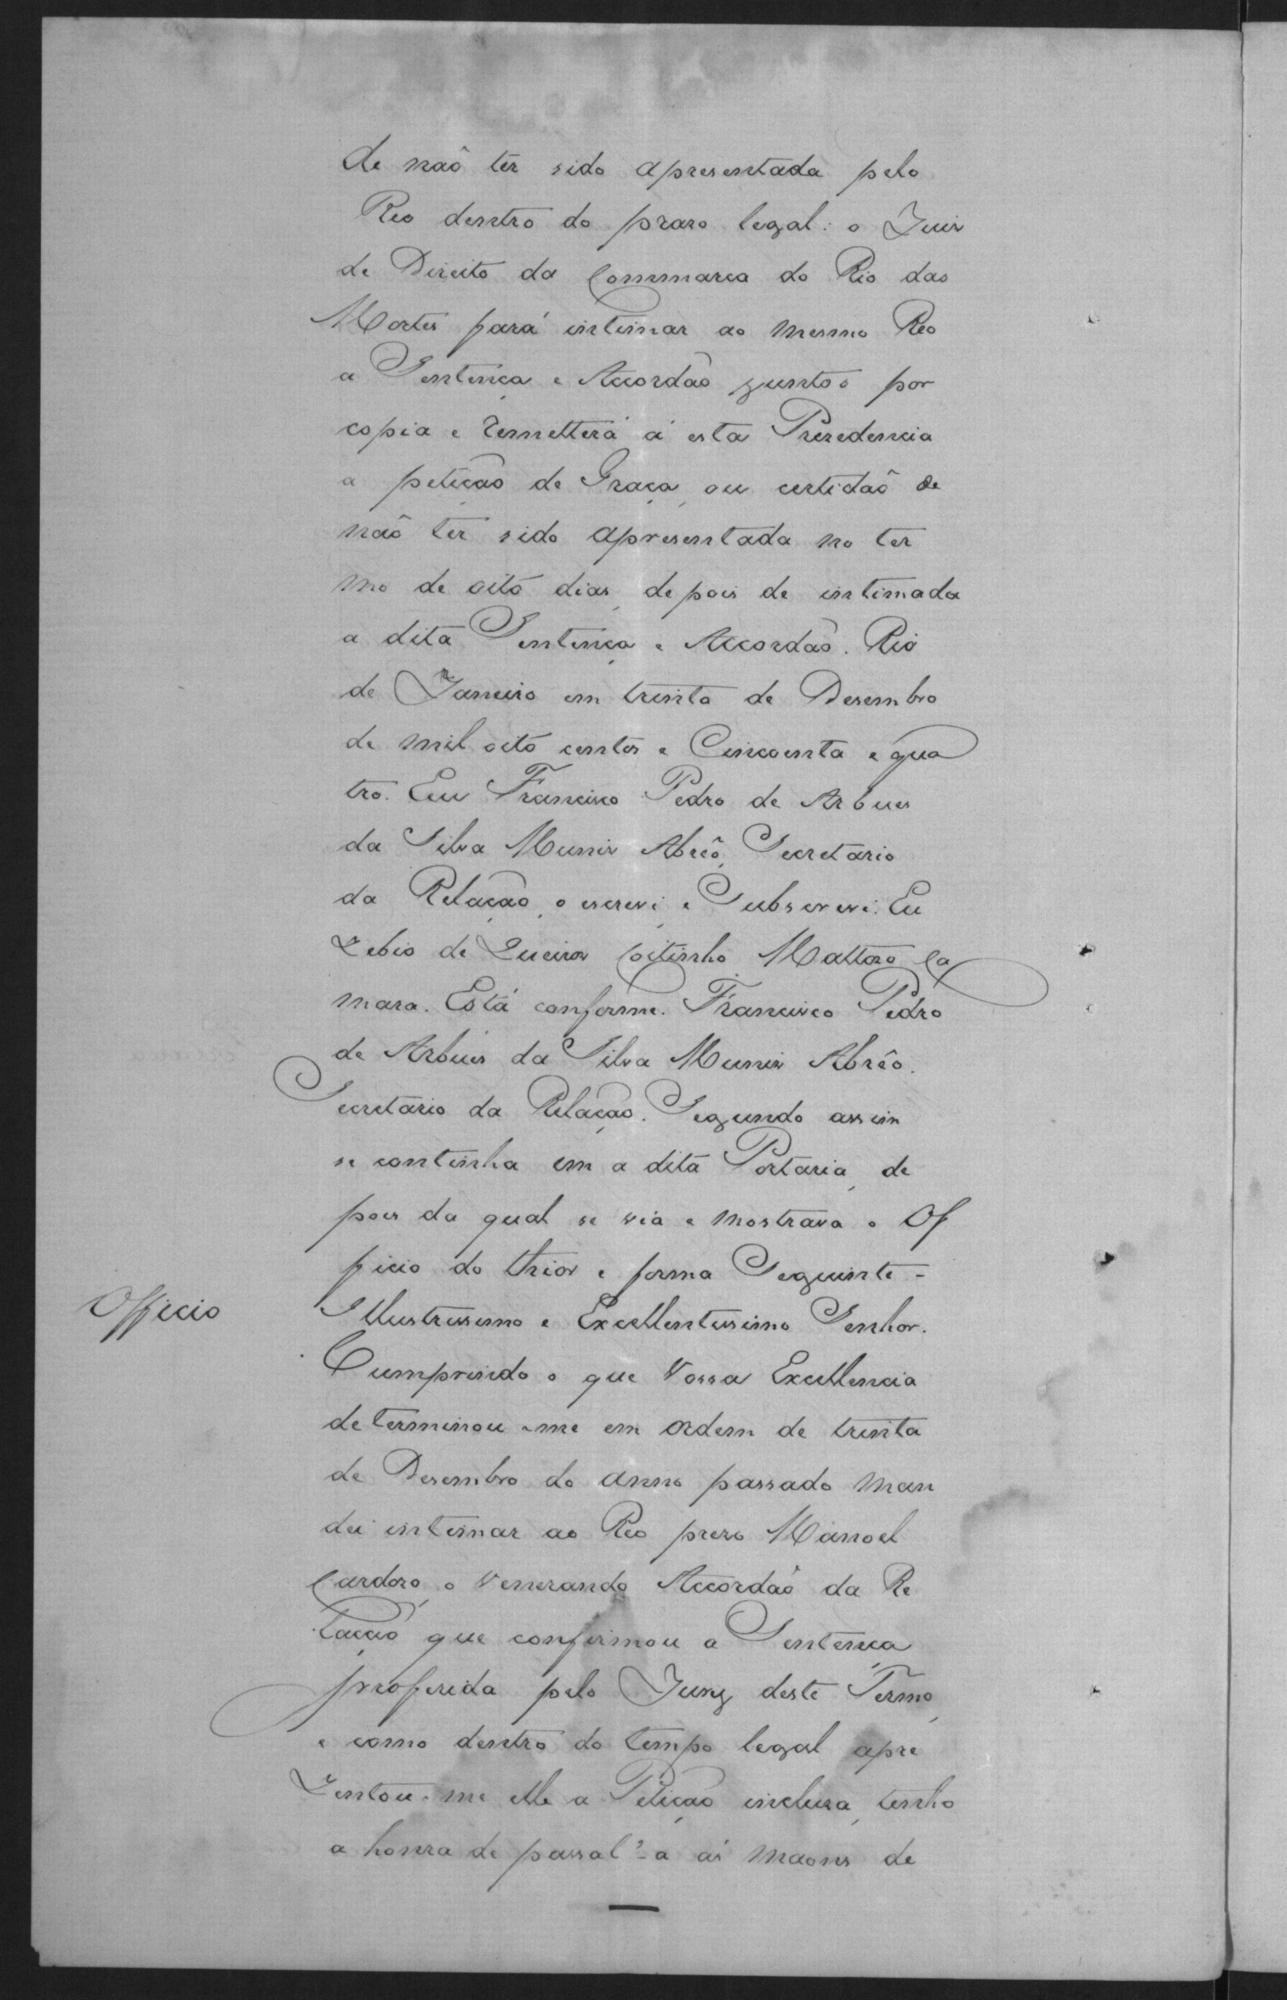 de naõ ter sido apresentada pelo
Reo dentro do praso legal: o Juis
de Direito da Commarca do Rio das
Mortes fará intimar ao mesmo Reo
a Sentença e Accordaõ juntos por
copia e remetterá á esta Presedencia
a petição de Graça, ou certidaõ de
naõ ter sido apresentada no ter
mo de oito dias, depois de intimada
a dita Sentença e Accordaõ. Rio
de Janeiro em trinta de Desembro
de mil oito centos e Cincoenta e qua
tro. Eu Francisco Pedro de Arbues
da Silva Munis Abrêo, Secretario
da Relaçaõ, o escrevi e Subscrevi. Eu
zebio de Queiros Coitinho Mattoso Ca
mara. Está conforme. Francisco Pedro
de Arbues da Silva Munis Abrêo.
Secretario da Relaçaõ. Segundo assim
se continha em a dita Portaria, de
pois da qual se via e mostrava o Of
ficio do thior e forma Seguinte -
Officio
Illustrissimo e Excellentissimo Senhor.
Cumprindo o que Vossa Excellencia
determinou-me em ordem de trinta
de Desembro do anno passado man
dei intimar ao Reo preso Manoel
Cardoso, o Venerando Accordaõ da Re
laçaõ que confirmou a Sentença
proferida pelo Jury deste Termo,
e como dentro do tempo legal apre
zentou-me elle a Petiçaõ inclusa, tenho
a honra de passal'-a ás maons de